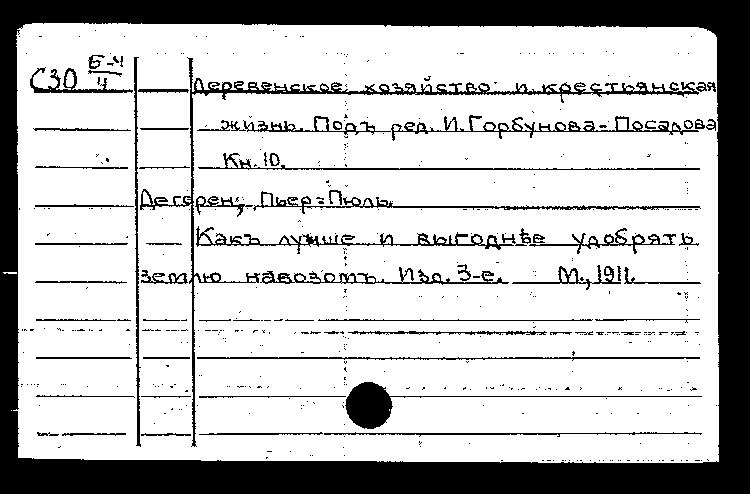 С30 Б-4/4 Деревенское хозяйство и крестьянская
жизнь. Подъ ред. И. Горбунова-Посадова
Кн. 10.
Дегерен, Пьер-Пюль.
Какъ лучше и выгоднѣе удобрять
землю навозомъ. Изд. 3-е. М., 1911.